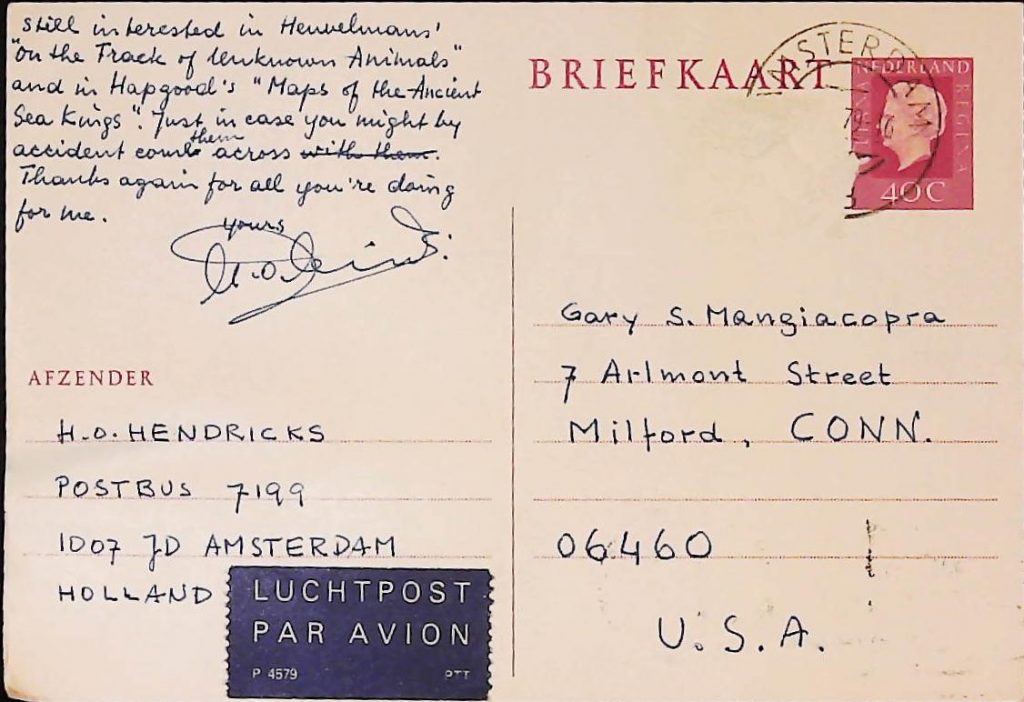 still interested in Heuvelmans'
"on the Track of Unknown Animals"
and in Hapgood's "Maps of the Ancient
Sea Kings". Just in case you might by
accident come them across with them.
Thanks again for all you're doing
for me.
yours
AFZENDER
H.O. HENDRICKS
POSTBUS 7199
1007 JD AMSTERDAM
HOLLAND
LUCHTPOST
PAR AVION
P 4579 PTT
BRIEFKAART
AMSTERDAM
NEDERLAND
REGINA
40 C
Gary S. Mangiacopra
7 Arlmont Street
Milford, CONN.
06460
U.S.A.